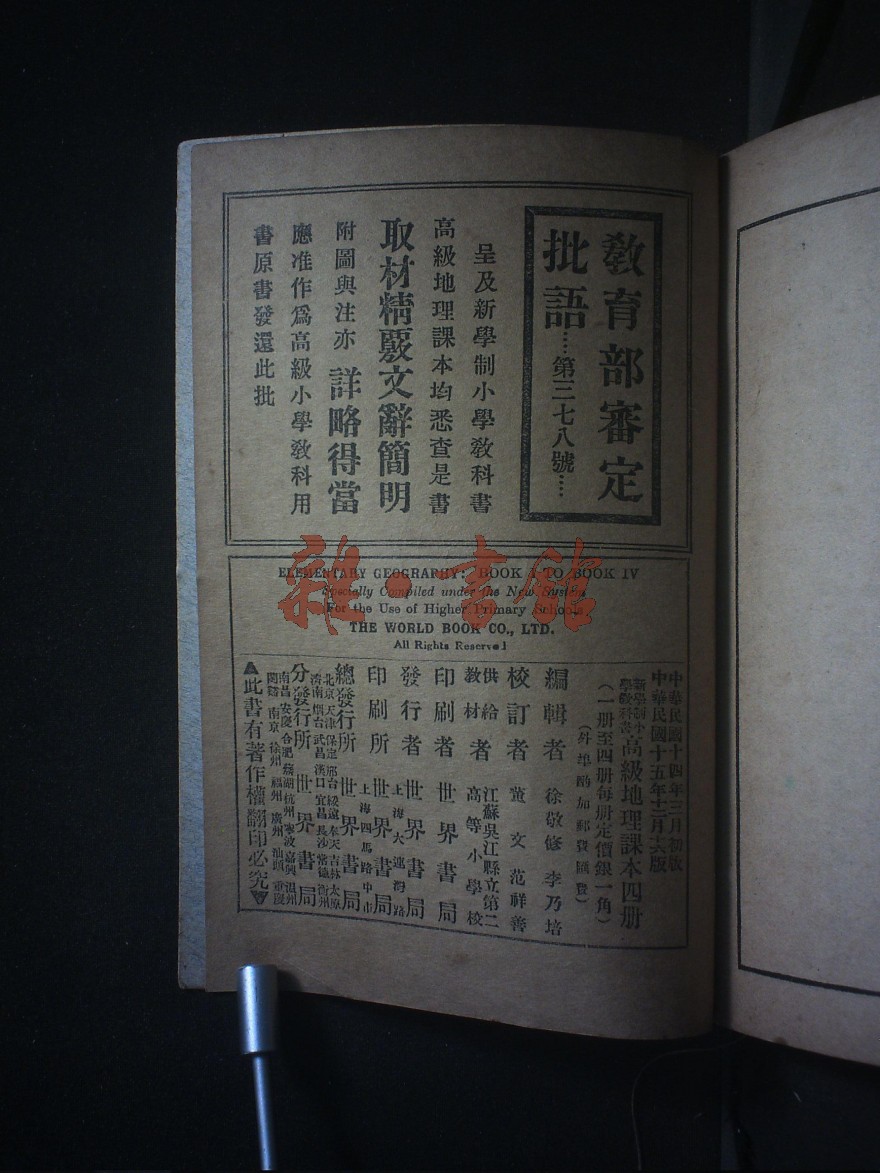 教育部審定
批語……第三七八號…
呈及新學制小學教科書
高級地理課本均悉查是書
取材精覈文辭簡明
附圖與注亦詳略得當
應准作爲高級小學教科用
書原書發還此批
ELEMENTARY GEOGRAPHY: BOOK I TO BOOK IV
Specially Compiled under the New System
For the Use of Higher Primary Schools
THE WORLD BOOK CO., LTD.
All Rights Reserved
中華民國十四年三月初版
中華民國十五年十二月六版
新學制小學教科書高級地理課本四册
（一册至四册每册定價銀一角）
（外埠酌加郵費匯費）
編輯者 徐敬修 李乃培
校訂者 董文 范祥善
供給教材者 江蘇吳江縣立第二高等小學校
印刷者 世界書局
發行者 世界書局
上海大連灣路
印刷所 世界書局
上海四馬路中市
總發行所 世界書局
北京 天津 保定 邢台 綏遠 奉天 吉林 太原
濟南 烟台 武昌 漢口 宜昌 長沙 常德 衡州
分發行所 世界書局
南昌 安慶 合肥 蕪湖 杭州 寧波 嘉興 温州
南京 徐州 福州 廣州 汕頭 重慶
▲此書有著作權翻印必究▼
雜·書館